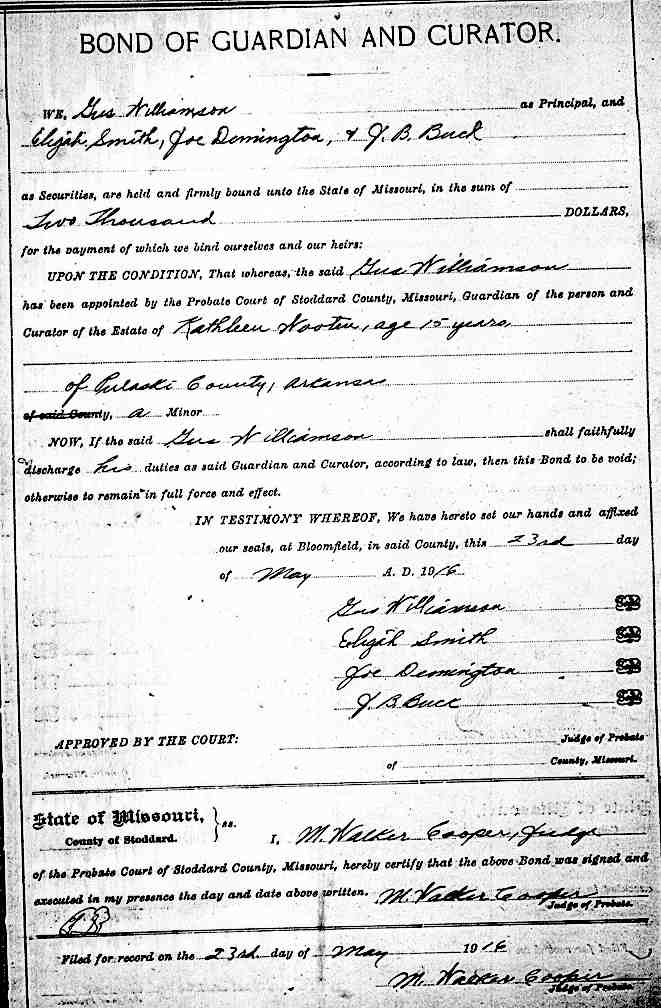 BOND OF GUARDIAN AND CURATOR.
WE, Gus Williamson as Principal, and
Elijah Smith, Joe Dennington, & J. B. Buck
as Securities, are held and firmly bound unto the State of Missouri, in the sum of
Two Thousand DOLLARS,
for the payment of which we bind ourselves and our heirs:
UPON THE CONDITION, That whereas, the said Gus Williamson
has been appointed by the Probate Court of Stoddard County, Missouri, Guardian of the person and
Curator of the Estate of Kathleen Wooten, age 15 years,
of Pulaski County, Arkansas
of said County, a Minor
NOW, If the said Gus Williamson shall faithfully
discharge his duties as said Guardian and Curator, according to law, then this Bond to be void;
otherwise to remain in full force and effect.
IN TESTIMONY WHEREOF, We have hereto set our hands and affixed
our seals, at Bloomfield, in said County, this 23rd day
of May A. D. 1916
Gus Williamson
Elijah Smith
Joe Dennington
J. B. Buck
APPROVED BY THE COURT: Judge of Probate
of County, Missouri.
State of Missouri, } ss.
County of Stoddard.
I, M. Walker Cooper, Judge
of the Probate Court of Stoddard County, Missouri, hereby certify that the above Bond was signed and
executed in my presence the day and date above written. M. Walker Cooper
Judge of Probate.
Filed for record on the 23rd day of May 1916
M. Walker Cooper
Judge of Probate.